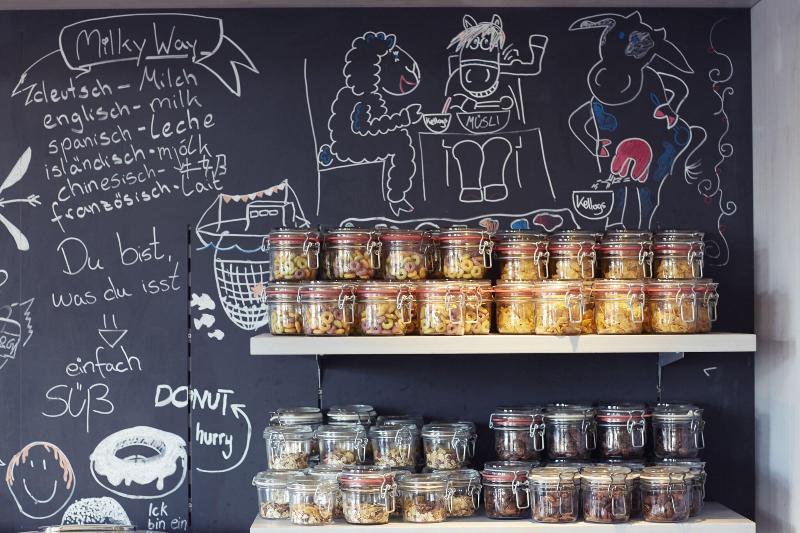 Milky Way
deutsch - Milch
englisch - milk
spanisch - Leche
isländisch - mjólk
chinesisch - 牛奶
französisch - Lait
Kelloggs
MÜSLI
Kelloggs
Du bist,
was du isst
einfach
SÜß
DONUT
hurry
Ick
bin ein